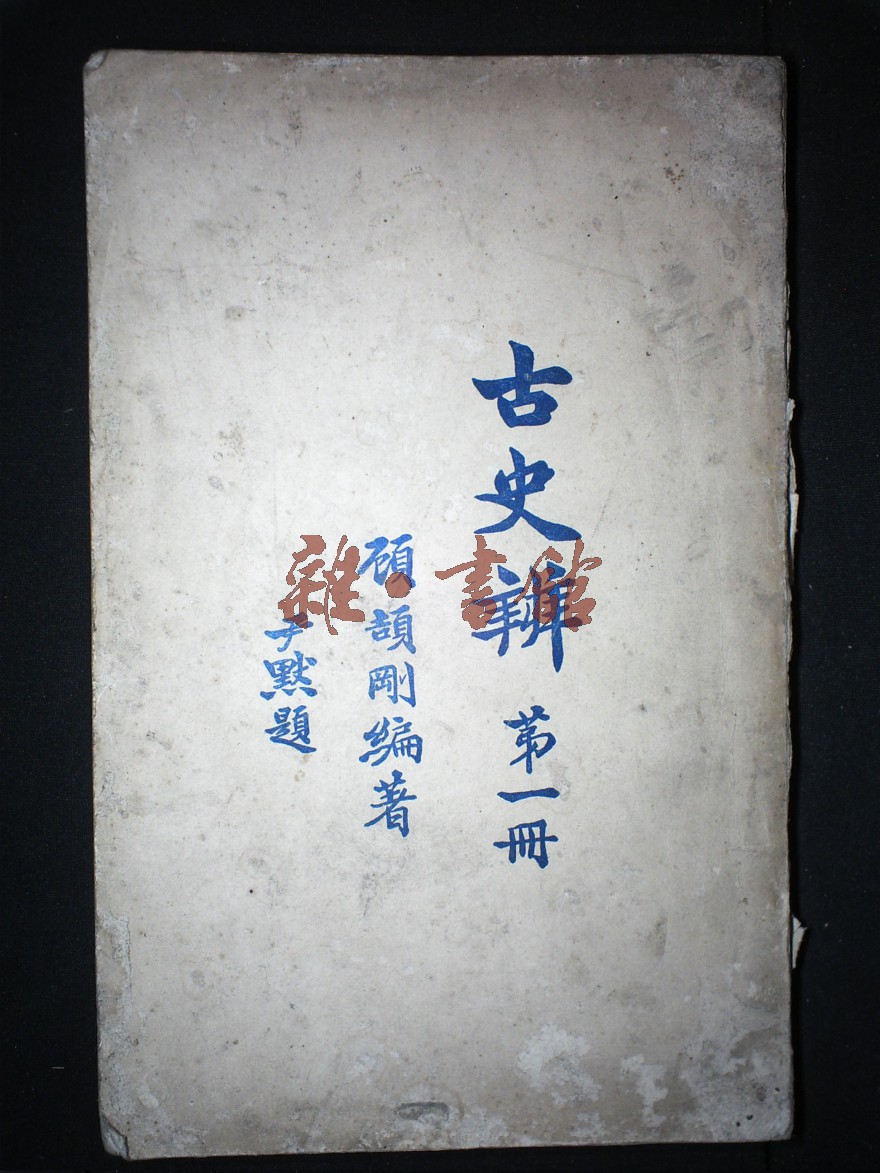 古史辨
第一冊
顧頡剛編著
尹默題
雜·書館